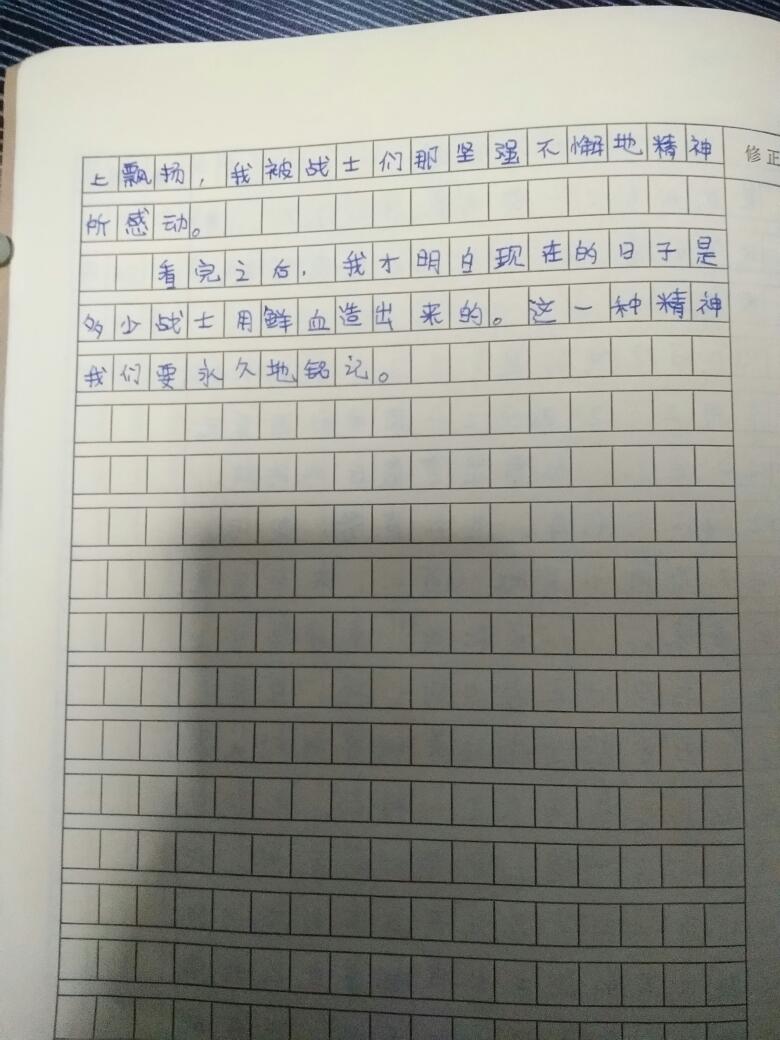 上飘扬，我被战士们那坚强不懈地精神
修正
所感动。
看完之后，我才明白现在的日子是
多少战士用鲜血造出来的。这一种精神
我们要永久地铭记。